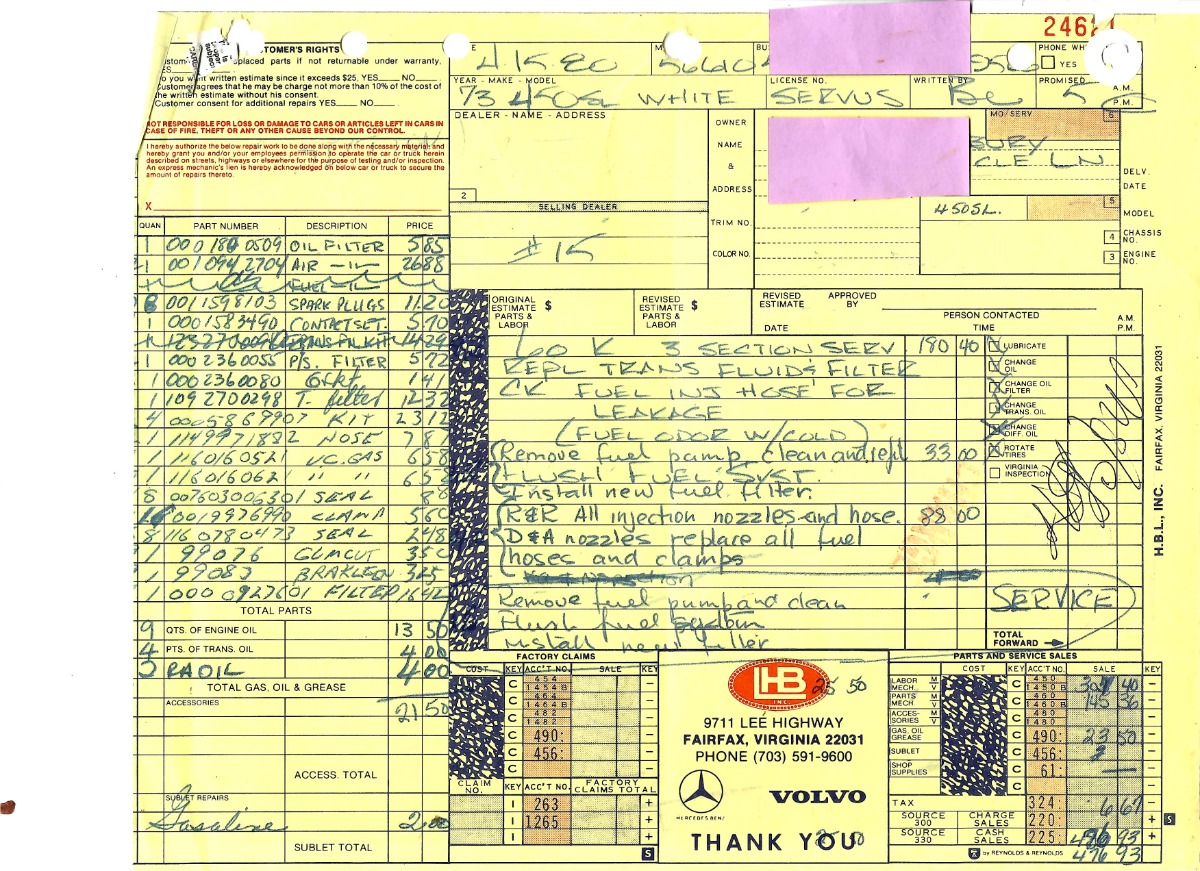 CUSTOMER'S RIGHTS
placed parts if not returnable under warranty,
YES____ NO____
Do you want written estimate since it exceeds $25, YES____ NO____
Customer agrees that he may be charged not more than 10% of the cost of
the written estimate without his consent.
Customer consent for additional repairs YES____ NO____.
NOT RESPONSIBLE FOR LOSS OR DAMAGE TO CARS OR ARTICLES LEFT IN CARS IN
CASE OF FIRE, THEFT OR ANY OTHER CAUSE BEYOND OUR CONTROL.
I hereby authorize the below repair work to be done along with the necessary material and
hereby grant you and/or your employees permission to operate the car or truck herein
described on streets, highways or elsewhere for the purpose of testing and/or inspection.
An express mechanic's lien is hereby acknowledged on below car or truck to secure the
amount of repairs thereto.
X
2462
4.15.80
PHONE WH
YES
YEAR - MAKE - MODEL
73 450SL WHITE
LICENSE NO.
SERVUS
WRITTEN BY
PROMISED
5
A.M.
P.M.
DEALER - NAME - ADDRESS
OWNER
NAME
&
ADDRESS
MO/SERV
6
BURY
CLE LN
DELV.
DATE
2
SELLING DEALER
#15
TRIM NO.
COLOR NO.
450SL.
5
MODEL
4
CHASSIS
NO.
3
ENGINE
NO.
QUAN PART NUMBER DESCRIPTION PRICE
1 000 180 0509 OIL FILTER 5 85
1 001 094 2704 AIR -"- 26 88
FUEL -"-
8 0011598103 SPARK PLUGS 11 20
1 0001583490 CONTACT SET. 5 70
TRANS FIL KIT 14 29
1 000 2360055 P/S. FILTER 5 72
1 0002360080 GSKT 1 41
1 109 2700298 T. filter 12 32
4 0005869907 KIT 23 12
1 1149971882 HOSE 7 87
1 1160160521 I.C. GAS 6 58
1 1160160621 " " 6 58
8 007603006301 SEAL 88
16 0019976990 CLAMP 5 60
8 1160780473 SEAL 2 48
1 99076 GUMCUT 3 50
1 99083 BRAKLEEN 3 25
1 000 0927601 FILTER 16 42
TOTAL PARTS
9 QTS. OF ENGINE OIL 13 50
4 PTS. OF TRANS. OIL 4 00
3 RA OIL 4 00
TOTAL GAS, OIL & GREASE
21 50
ACCESSORIES
ACCESS. TOTAL
SUBLET REPAIRS
Gasoline 2 00
SUBLET TOTAL
ORIGINAL
ESTIMATE $
PARTS &
LABOR
REVISED
ESTIMATE $
PARTS &
LABOR
REVISED
ESTIMATE
APPROVED
BY
PERSON CONTACTED
DATE
TIME
A.M.
P.M.
60 K 3 SECTION SERV 180 40
REPL TRANS FLUID & FILTER
CK FUEL INJ HOSE FOR
LEAKAGE
(FUEL ODOR W/COLD)
Remove fuel pump clean and repl 33 00
FLUSH FUEL SYST.
Install new fuel filter.
R&R All injection nozzles and hose. 88 00
D&A nozzles replace all fuel
hoses and clamps
Remove fuel pump and clean
Flush fuel system
Install new filter
LUBRICATE
CHANGE
OIL
CHANGE OIL
FILTER
CHANGE
TRANS. OIL
CHANGE
DIFF. OIL
ROTATE
TIRES
VIRGINIA
INSPECTION
SERVICE
TOTAL
FORWARD
H.B.L., INC. FAIRFAX, VIRGINIA 22031
FACTORY CLAIMS
COST KEY ACC'T NO. SALE KEY
C 454
1454 B
C 464
1464 B
C 482
1482
C 490:
C 456:
C
CLAIM
NO.
KEY ACC'T NO.
FACTORY
CLAIMS TOTAL
I 263 +
I 1265 +
I +
S
LHB
INC.
25 50
9711 LEE HIGHWAY
FAIRFAX, VIRGINIA 22031
PHONE (703) 591-9600
MERCEDES BENZ
VOLVO
THANK YOU
PARTS AND SERVICE SALES
COST KEY ACC'T NO. SALE KEY
LABOR MECH. M V C 450 1450 B 301 40
PARTS MECH. M V C 460 1460 B 145 36
ACCESSORIES M V C 480 1480
GAS, OIL GREASE C 490: 23 50
SUBLET C 456:
SHOP SUPPLIES C 61: —
C
TAX 324: 6 67
SOURCE 300 CHARGE SALES 220:
SOURCE 330 CASH SALES 225: 476 93
by REYNOLDS & REYNOLDS
476 93
S